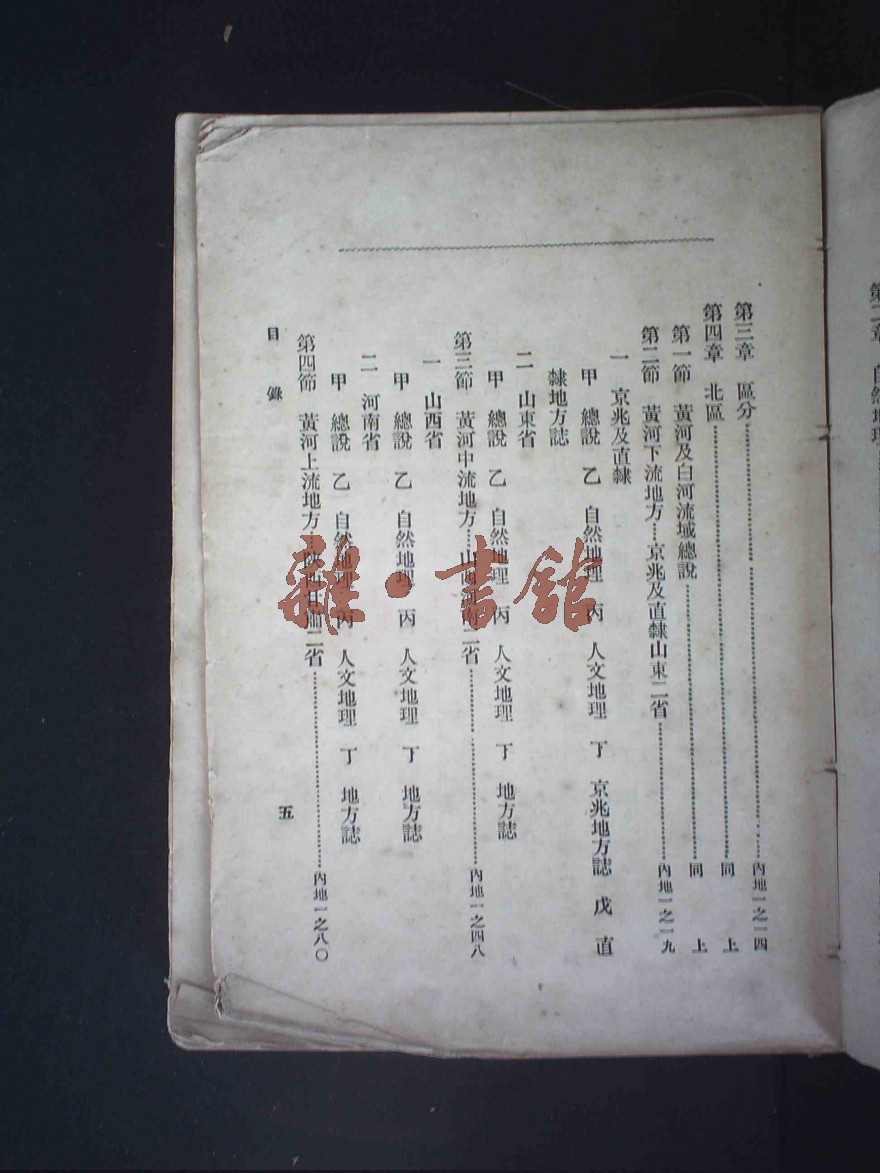 第三章　區分……內地一之一四
第四章　北區……同　上
第一節　黃河及白河流域總說……同　上
第二節　黃河下流地方……京兆及直隸山東二省……內地一之一九
一　京兆及直隸
甲　總說　乙　自然地理　丙　人文地理　丁　京兆地方誌　戊　直
隸地方誌
二　山東省
甲　總說　乙　自然地理　丙　人文地理　丁　地方誌
第三節　黃河中流地方……山西河南二省……內地一之四八
一　山西省
甲　總說　乙　自然地理　丙　人文地理　丁　地方誌
二　河南省
甲　總說　乙　自然地理　丙　人文地理　丁　地方誌
第四節　黃河上流地方……陝西甘肅二省……內地一之八〇
目　錄
五
雜·書館